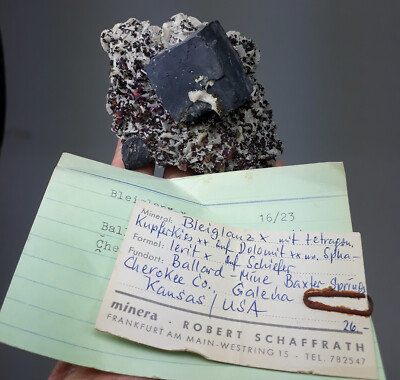 Bleiglanz x
16/23
Bal
Che
Mineral: Bleiglanz x mit tetragon.
Kupferkies xx auf Dolomit xx u. Spha-
Formel: lerit x auf Schiefer
Fundort: Ballard-Mine Baxter Springs
Cherokee Co. Galena
Kansas/USA
26.-
minera · ROBERT SCHAFFRATH
FRANKFURT AM MAIN-WESTRING 15 · TEL. 782547